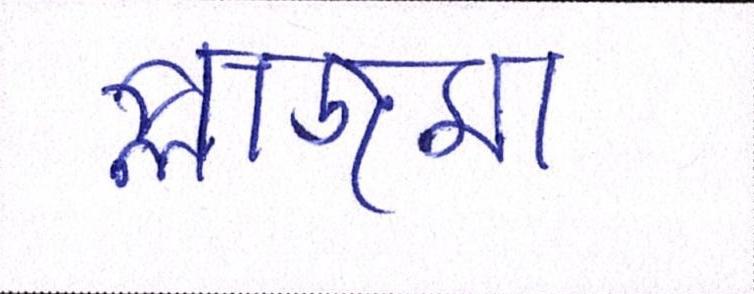 প্লাজমা